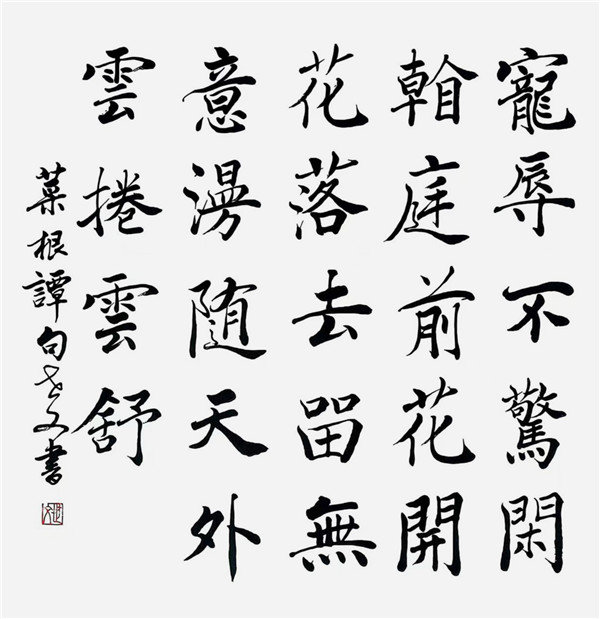 寵辱不驚閑
看庭前花開
花落去留無
意漫随天外
雲捲雲舒
菜根譚句世文書